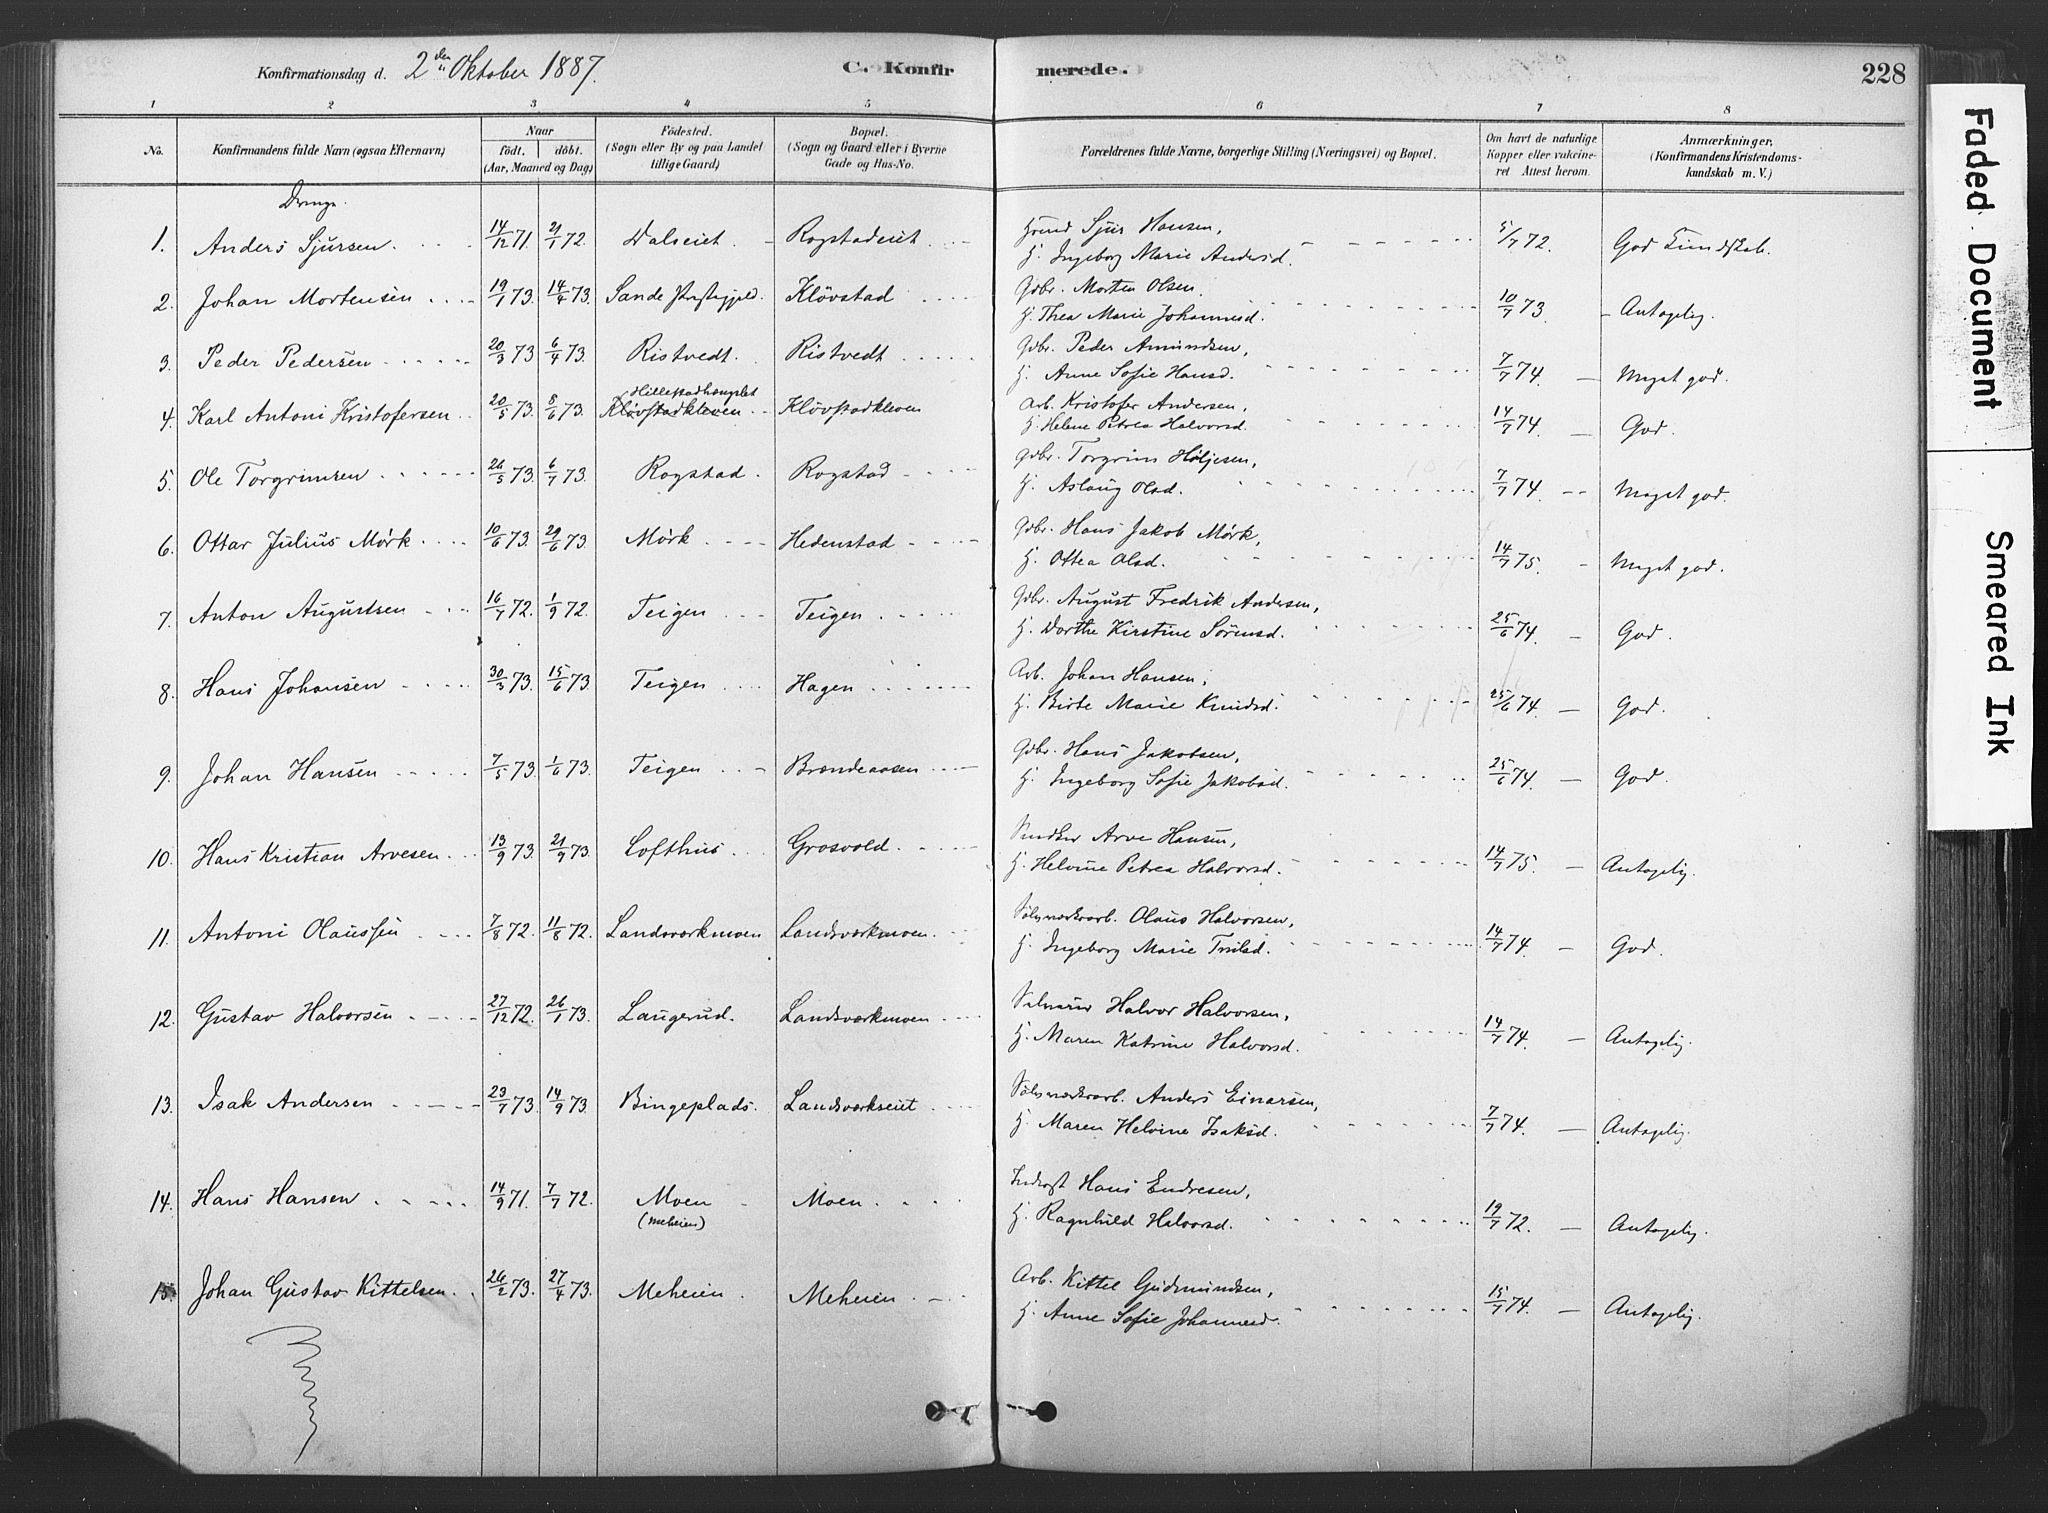 Konfirmationsdag d. 2den Oktober 1887. C. Konfirmerede. 228
1 2 3 4 5 6 7 8
No. Konfirmandens fulde Navn (ogsaa Efternavn) Naar født. døbt. (Aar, Maaned og Dag) Fødested. (Sogn eller By og paa Landet tillige Gaard) Bopæl. (Sogn og Gaard eller i Byerne Gade og Hus-No. Forældrenes fulde Navne, borgerlige Stilling (Næringsvei) og Bopæl. Om havt de naturlige Kopper eller vakcineret Attest herom. Anmærkninger. (Konfirmandens Kristendomskundskab m. V.)
Drenge.
1. Anders Sjursen 14/12 71. 21/1 72. Dalseiet Rogstadeiet Sjur Hansen, 5/7 72. God Kundskab.
H. Ingeborg Marie Andersd.
2. Johan Mortensen 19/1 73. 14/4 73. Sande Kløvstad Gdbr. Morten Olsen 10/7 73 Antagelig.
H. Thea Marie Johannesd.
3. Peder Pedersen 20/3 73 6/4 73. Ristvedt. Ristvedt Gdbr. Peder Amundsen, 7/7 74. Meget god.
H. Anne Sofie Hansd.
4. Karl Antoni Kristofersen 20/5 73. 8/6 73. Kløvstadkleven Kløvstadkleven Arb. Kristofer Andersen, 14/7 74. God.
H. Helene Petrea Halvorsd.
5. Ole Torgrimsen 26/5 73. 6/7 73. Rogstad. Rogstad Gdbr. Torgrim Høljesen, 7/7 74. Meget god.
H. Aslaug Olsd.
6. Ottar Julius Mørk 10/6 73. 29/6 73. Mørk Hedenstad Gdbr. Hans Jakob Mørk, 14/7 75. Meget god.
H. Ottea Olsd.
7. Anton Augustsen 16/7 72. 1/9 72. Teigen Teigen Gdbr. August Fredrik Andersen, 25/6 74. God.
H. Dorthe Kirstine Sørensd.
8. Hans Johansen 30/3 73. 15/6 73. Teigen Hagen Arb. Johan Hansen, 25/6 74. God.
H. Birte Marie Knudsd.
9. Johan Hansen 7/5 73. 1/6 73. Teigen Brændeaasen Gdbr. Hans Jakobsen, 25/6 74. God.
H. Ingeborg Sofie Jakobsd.
10. Hans Kristian Arvesen 13/9 73. 21/9 73. Lofthus Grosvold Arve Hansen, 14/7 75. Antagelig.
H. Helvine Petrea Halvorsd.
11. Antoni Olaussen 7/8 72. 11/8 72. Landsværkmoen Landsværkmoen Sølvværksarb. Olaus Halvorsen, 14/7 74. God.
H. Ingeborg Marie
12. Gustav Halvorsen 27/12 72. 26/1 73. Laugerud. Landsværkmoen Halvor Halvorsen, 14/7 74. Antagelig.
H. Maren Katrine Halvorsd.
13. Isak Andersen 23/7 73. 14/9 73. Bingeplads. Landsværkseiet Sølvværksarb. Anders Einarsen, 7/7 74. Antagelig.
H. Maren Helvine Isaksd.
14. Hans Hansen 14/9 71. 7/7 72. Moen (Meheien) Moen Inderst Hans Endresen, 19/7 72. Antagelig.
H. Ragnhild Halvorsd.
15. Johan Gustav Kittelsen 26/2 73. 27/4 73. Meheien. Meheien Arb. Kittel Gudmundsen, 15/7 74. Antagelig.
H. Anne Sofie Johannesd.
Faded Document
Smeared Ink